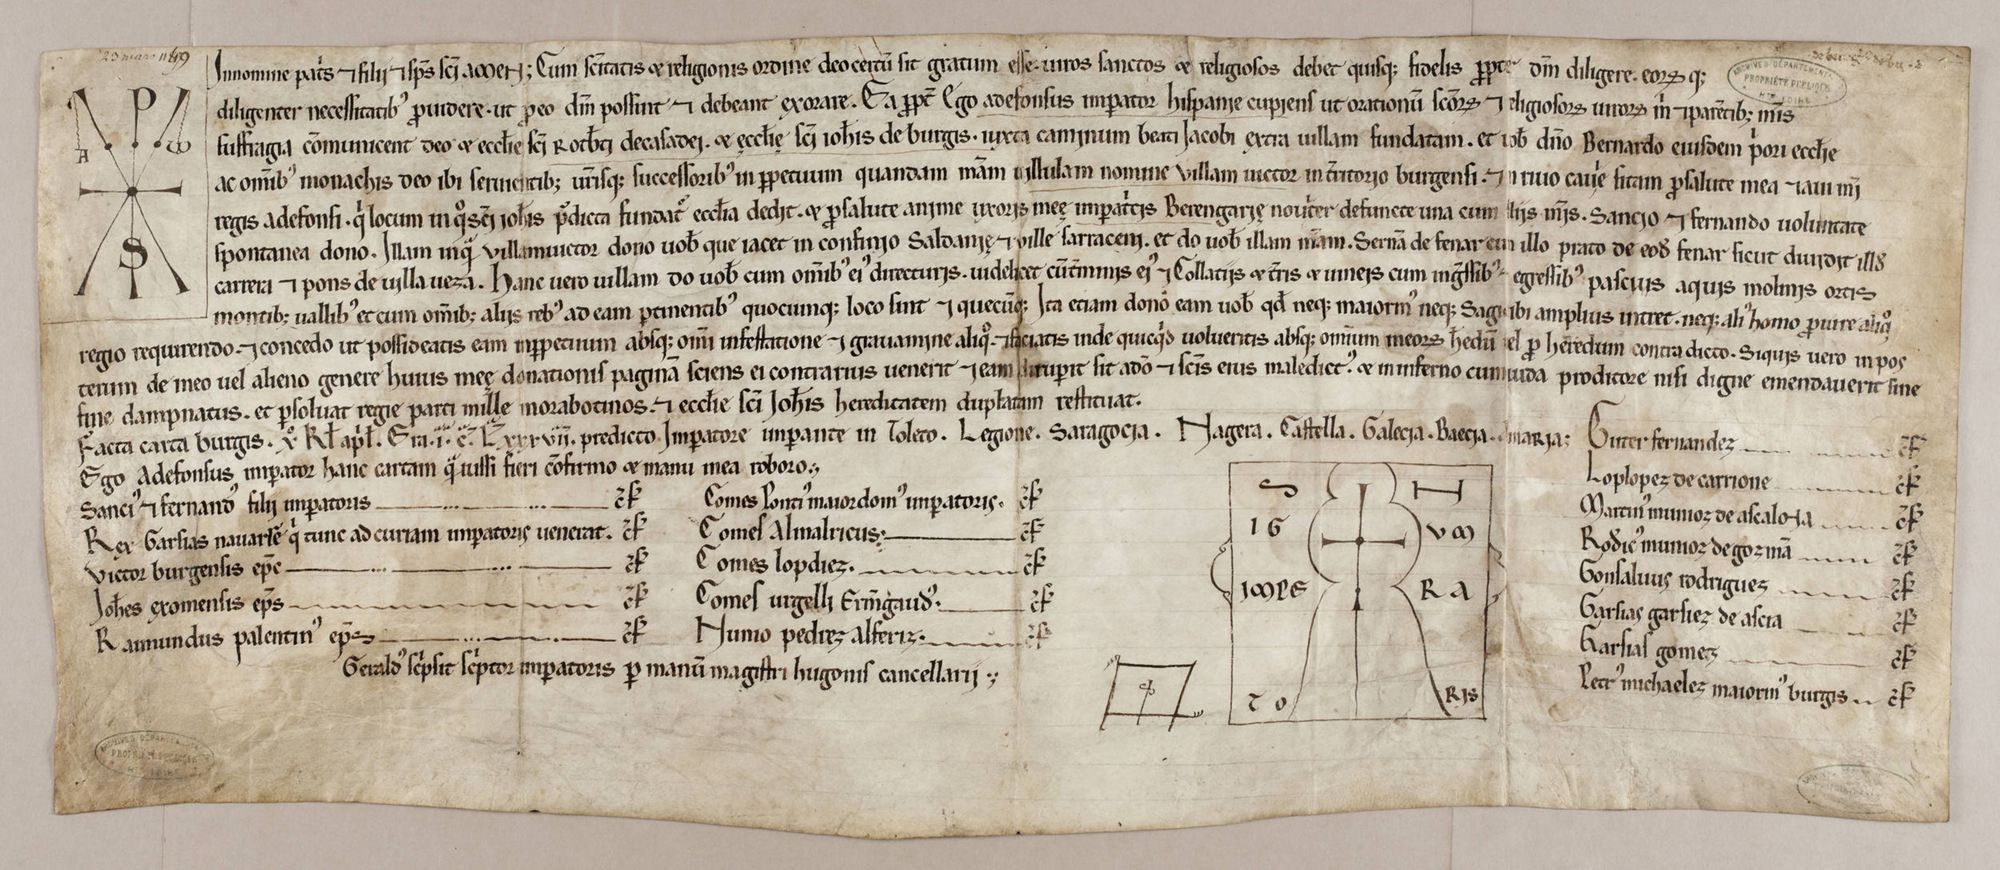 23 mars 1149
Innomine pat̄s ⁊ filii ⁊ sp̄s sc̄i amen; Cum sc̄itatis & religionis ordine deo certū sit gratum esse. uiros sanctos & religiosos debet quisq; fidelis ꝓpt̄ dm̄ diligere. eorꝝ q;
diligenter necessitatibꝰ ꝓuidere. ut ꝓ eo dm̄ possint ⁊ debeant exorare. Ea ꝓpt̄ Ego adefonsus imperator hispanie cupiens ut orationū sc̄orꝝ ⁊ religiosorꝝ uirorꝝ m̄ ⁊ parētib; m̄is
suffragia cōmunicent deo & eccl̄ie sc̄i Rotb̄ti decasadei. & ęccl̄ię sc̄i ioh̄is de burgis. iuxta caminum beati Jacobi extra uillam fundatam. et uob̄ dn̄o Bernardo eiusdem p̄ori eccl̄ie
ac om̄ibꝰ monachis deo ibi seruientib; ur̄isq; successoribꝰ in ꝑpetuum quandam m̄am uillulam nomine uillam uictor in t̄ritorio burgensi. ⁊ in riuo caue sitam ꝓ salute mea ⁊ aui m̄i
regis adefonsi. q̄ locum in q̊ sc̄i ioh̄is p̄dicta fundatꝰ eccl̄ia dedit. & ꝓ salute anime uxoris meę imꝑat̄cis Berengarię nouit̄er defuncte una cum filiis m̄is. Sancio ⁊ fernando uoluntate
spontanea dono. Illam inq̄ uillamuictor dono uob̄ que iacet in confinio Saldanię ⁊ uille sarraceni. et do uob̄ illam m̄am. Sernā de fenar cum illo prato de eod̄ fenar sicut diuidit illd̄
carrera ⁊ pons de uilla ueza. Hanc uero uillam do uob̄ cum om̄ibꝰ eiꝰ directuris. uidelicet cū t̄minis eiꝰ ⁊ Collatiis & t̄ris & uineis cum ing̊ssibꝰ egressibꝰ pascuis aquis molinis ortis
montib; uallibꝰ et cum om̄ib; aliis rebꝰ ad eam ꝑtinentibꝰ quocunq; loco sint ⁊ quecūq; Ita etiam dono eam uob̄ qd̄ neq; maiorinꝰ neq; Sagio ibi amplius intret. neq; aliꝰ homo ꝓ iure aliq̊
regio requirendo. ⁊ concedo ut possideatis eam inꝑpetuum absq; om̄i infestatione ⁊ grauamine aliq̊. ⁊ faciatis inde quicq̄d uolueritis absq; omnium meorꝝ hedū uel ꝓheredum contradicto. Siquis uero in pos
terum de meo uel alieno genere huius meę donationis paginā sciens ei contrarius uenerit ⁊ eam irrupit sit a dō ⁊ sc̄is eius maledictꝰ. & in inferno cum iuda proditore nisi digne emendauerit sine
fine dampnatus. et ꝑsoluat regie parti mille morabotinos. ⁊ eccl̄ie sc̄i Ioh̄is hereditatem duplatam restituat.
Facta carta burgis. x̊. kl̄ ap̄l. Era. ī. c̄. lxxxvii. predicto Imꝑatore imꝑante in Toleto. Legione. Saragocia. Nagera. Castella. Galecia. Baecia. Almaria:
Ego Adefonsus imꝑator hanc cartam q̄ iussi fieri cōfirmo & manu mea roboro.
Sanciꝰ ⁊ fernandꝰ filii imꝑatoris cf̄
Rex Garsias nauarre q̄ tunc ad curiam imꝑatoris uenerat. cf̄
Victor burgensis ep̄c cf̄
Joh̄es exomensis ep̄s cf̄
Raimundus palentinꝰ ep̄s cf̄
Comes Pontiꝰ maiordomꝰ imꝑatoris. cf̄
Comes Almalricus: cf̄
Comes lopdiez. cf̄
Comes urgelli Erm̄gaudꝰ. cf̄
Nunio pedrez alferiz. cf̄
Geraldꝰ sc̄psit sc̄ptor imꝑatoris ꝑ manū magistri hugonis cancellarii
SIGNVM IMPERATORIS
Guter fernandez cf̄
Loplopez de carrione cf̄
Martinꝰ munioz de ascalona cf̄
Rod̄icꝰ munioz de gozmā cf̄
Gonsaluus rodriguez cf̄
Garsias garsiez de ascia cf̄
Garsias gomez cf̄
Petrꝰ michaelez maiorinꝰ burgis cf̄
ARCHIVES DÉPARTEMENTALES
PROPRIÉTÉ PUBLIQUE
HTE LOIRE